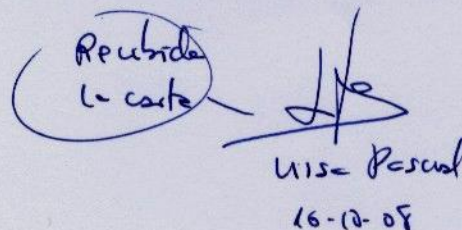 Recibida
la carta
Luisa Pascual
16-10-08